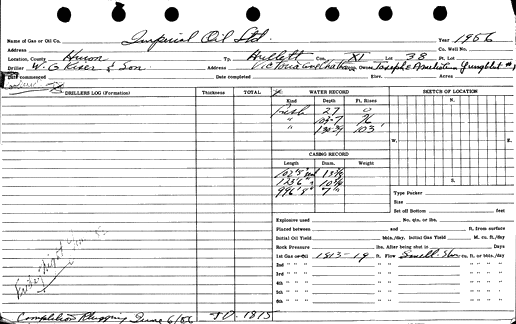 Name of Gas or Oil Co. Imperial Oil Ltd. Year 1956
Address Co. Well No.
Location, County Huron Tp. Hullett Con. XI Lot 38 Pt. Lot
Driller W. G. Kiser & Son Address Owner Joseph &
Date commenced Date completed Elev. Acres
DRILLERS LOG (Formation) Thickness TOTAL WATER RECORD SKETCH OF LOCATION
Kind Depth Ft. Rises N.
Fresh 27 0
" 103-7 76
" 130-34 103
W. E.
CASING RECORD
Length Diam. Weight
102'5" 13 3/8
123'6" 10 3/4
996'8" 7" S.
Type Packer
Size
Set off Bottom feet
Explosive used No. qts. or lbs.
Placed between and ft. from surface
Initial Oil Yield bbls./day, Initial Gas Yield M. cu. ft./day
Rock Pressure lbs. After being shut in Days
1st Gas or Oil 1813-19 ft. Flow Small Show cu. ft. or bbls./day
2nd " " " " " "
3rd " " " " " "
4th " " " " " "
5th " " " " " "
6th " " " " " "
Completion Plugging June 6/56 TD. 1815